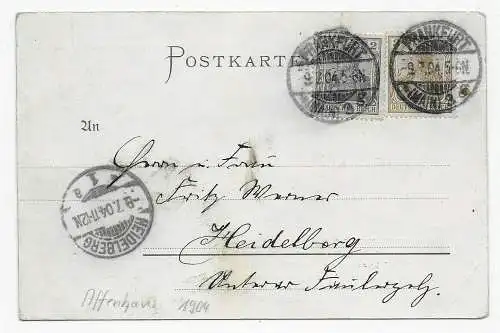 POSTKARTE
FRANKFURT
9.7.04.5-6N.
(MAIN)
FRANKFURT
9.7.04.5-6N.
(MAIN)
2
REICH
An
Herrn u. Frau
Fritz Werner
Heidelberg
Unterer
HEIDELBERG
9.7.04.11-12N
1 a
Affenhaus 1904